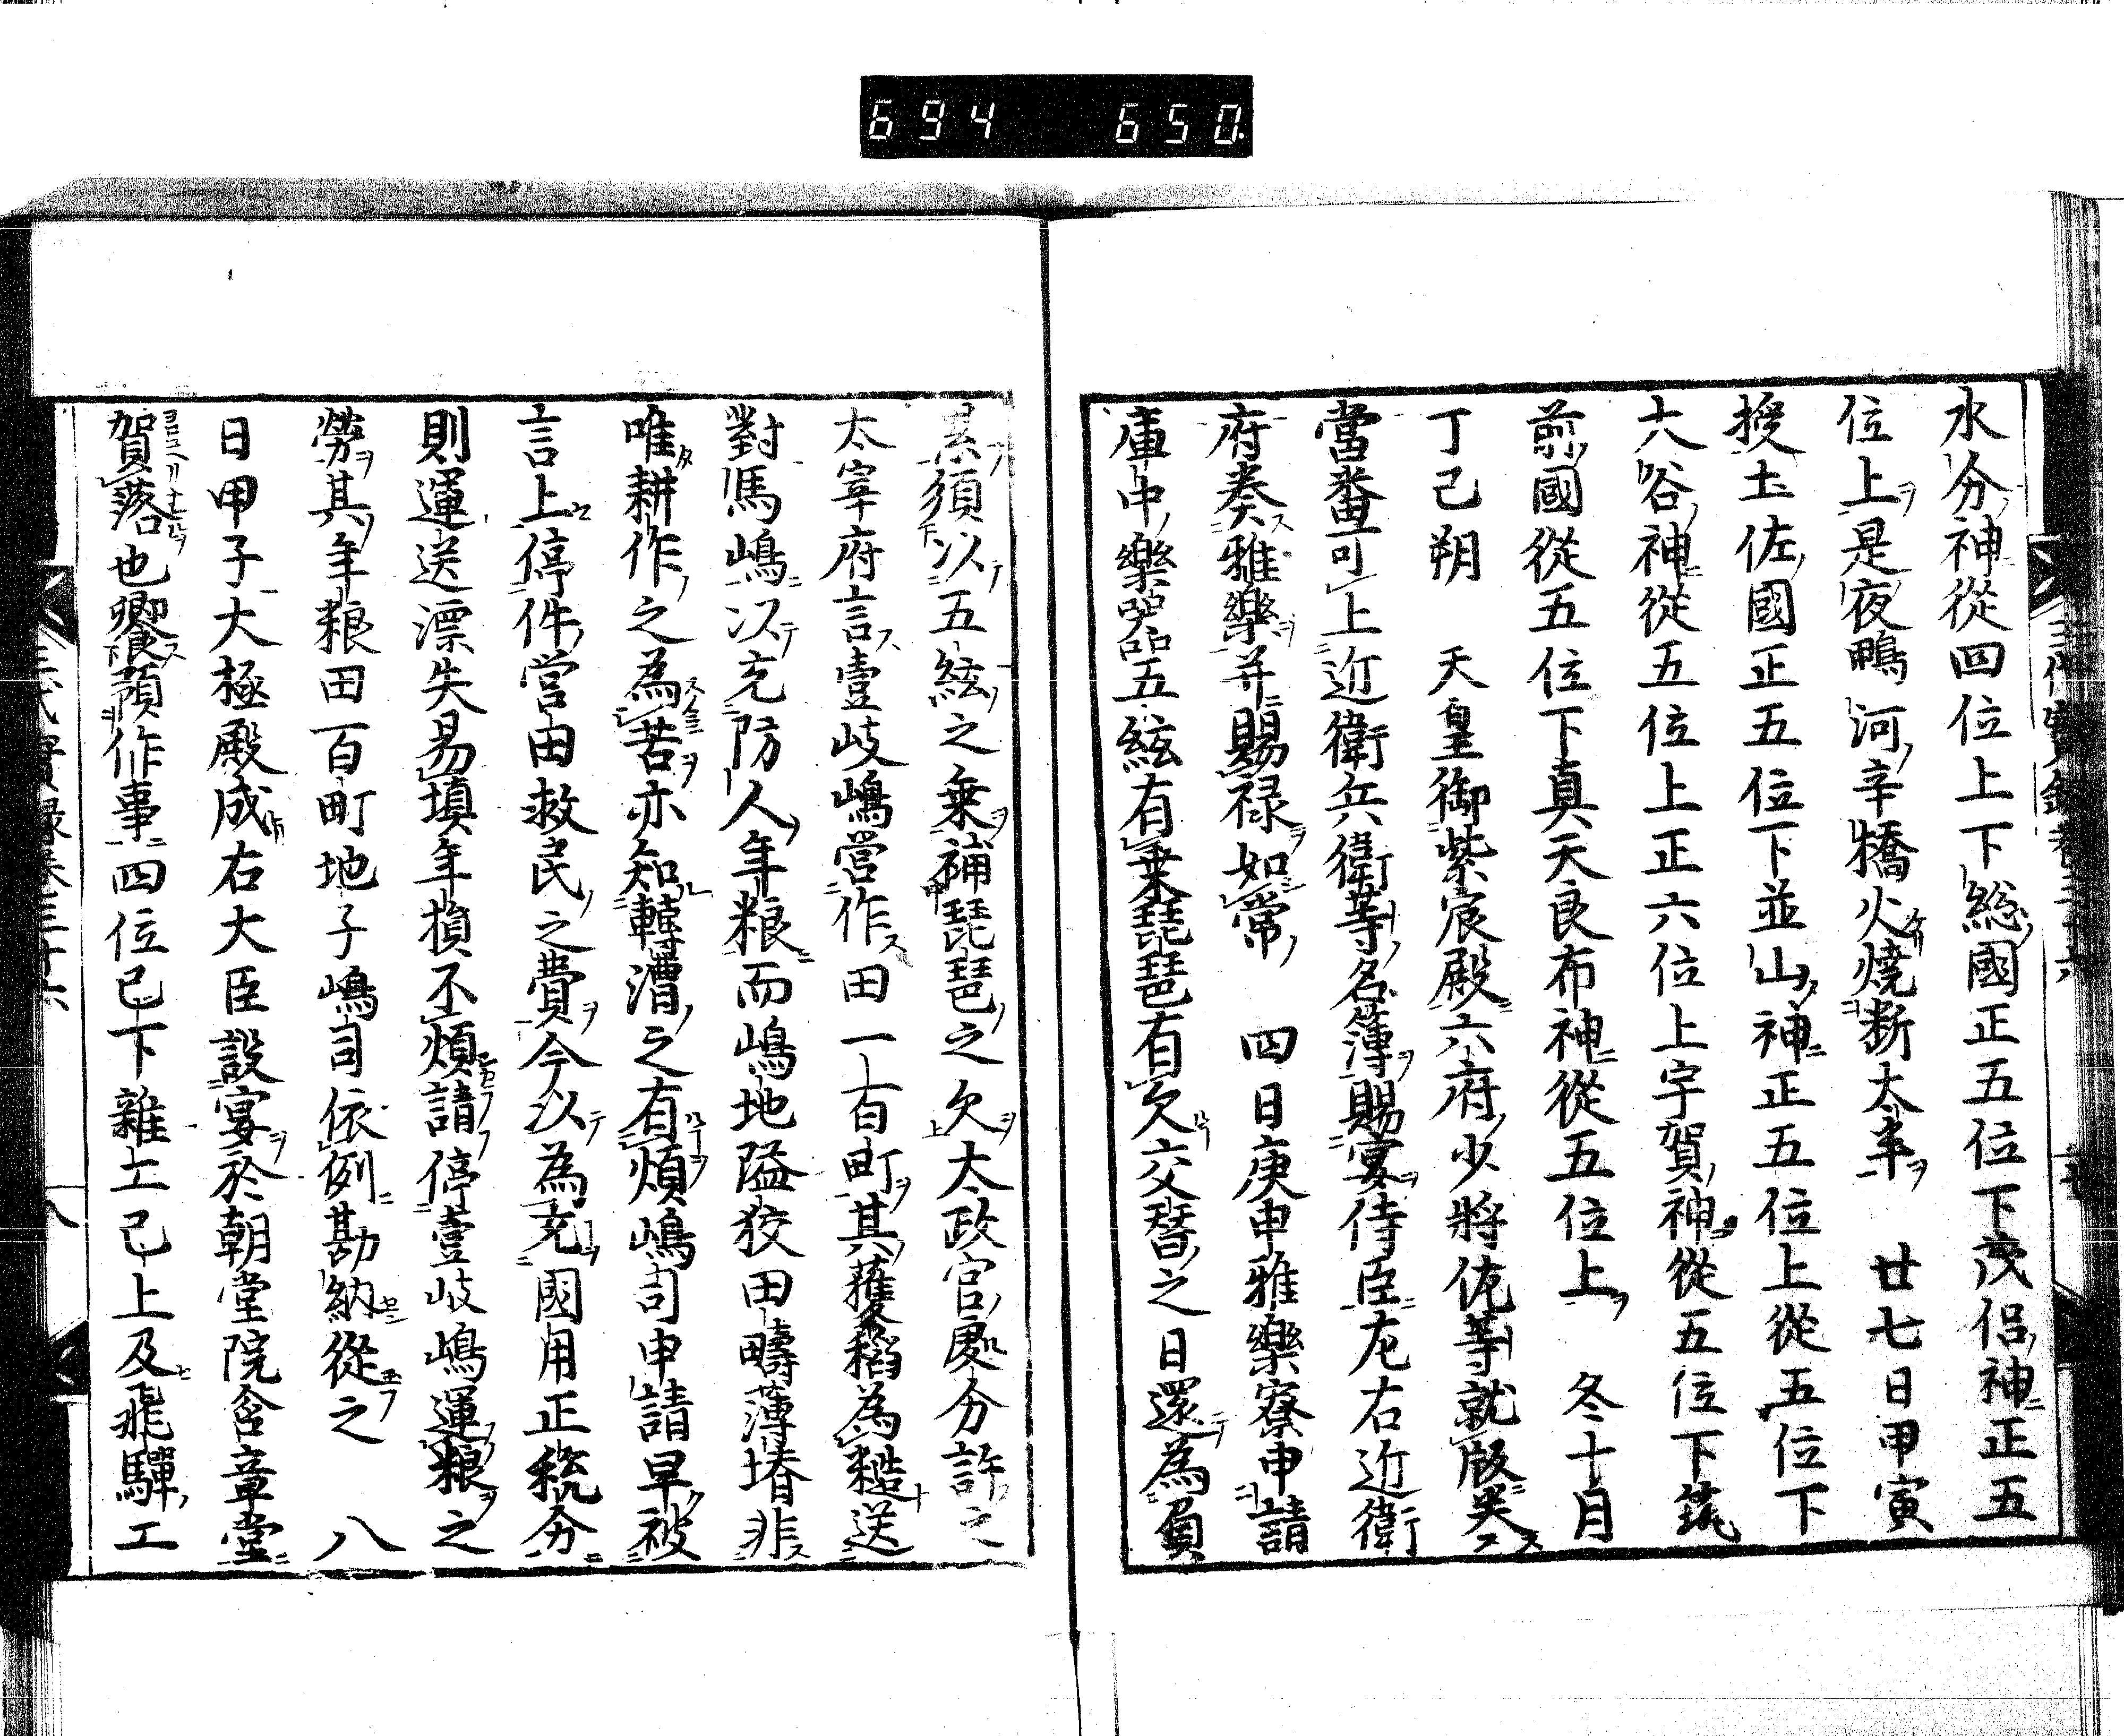 694 650
水分神從四位上下総國正五位下茂侶神正五
位上是夜鴨河辛橋火燒断大半 廿七日甲寅
授土佐國正五位下並山神正五位上從五位下
大谷神從五位上正六位上宇賀神從五位下筑
前國從五位下真天良布神從五位上 冬十月
丁己朔 天皇御紫宸殿六府少將佐等就版奏
當番可上近衛兵衛等名簿賜宴侍臣左右近衛
府奏雅樂并賜禄如常 四日庚申雅樂寮申請
庫中樂器五絃有乗琵琶有欠交替之日還為負
累須以五絃之乗補琵琶之欠太政官處分許之
太宰府言壹岐嶋營作田一百町其穫稻為糙送
對馬嶋以充防人年粮而嶋地隘狡田疇薄堉非
唯耕作之為苦亦知轉漕之有煩嶋司申請早被
言上停件営田救民之費今以為充國用正税分
則運送漂失易填年損不煩請停壹岐嶋運粮之
勞其年粮田一百町地子嶋司依例勘納從之 八
日甲子大極殿成右大臣設宴於朝堂院含章堂
賀落也饗預作事四位已下雜工已上及飛驒工
三代實録卷三十六 八